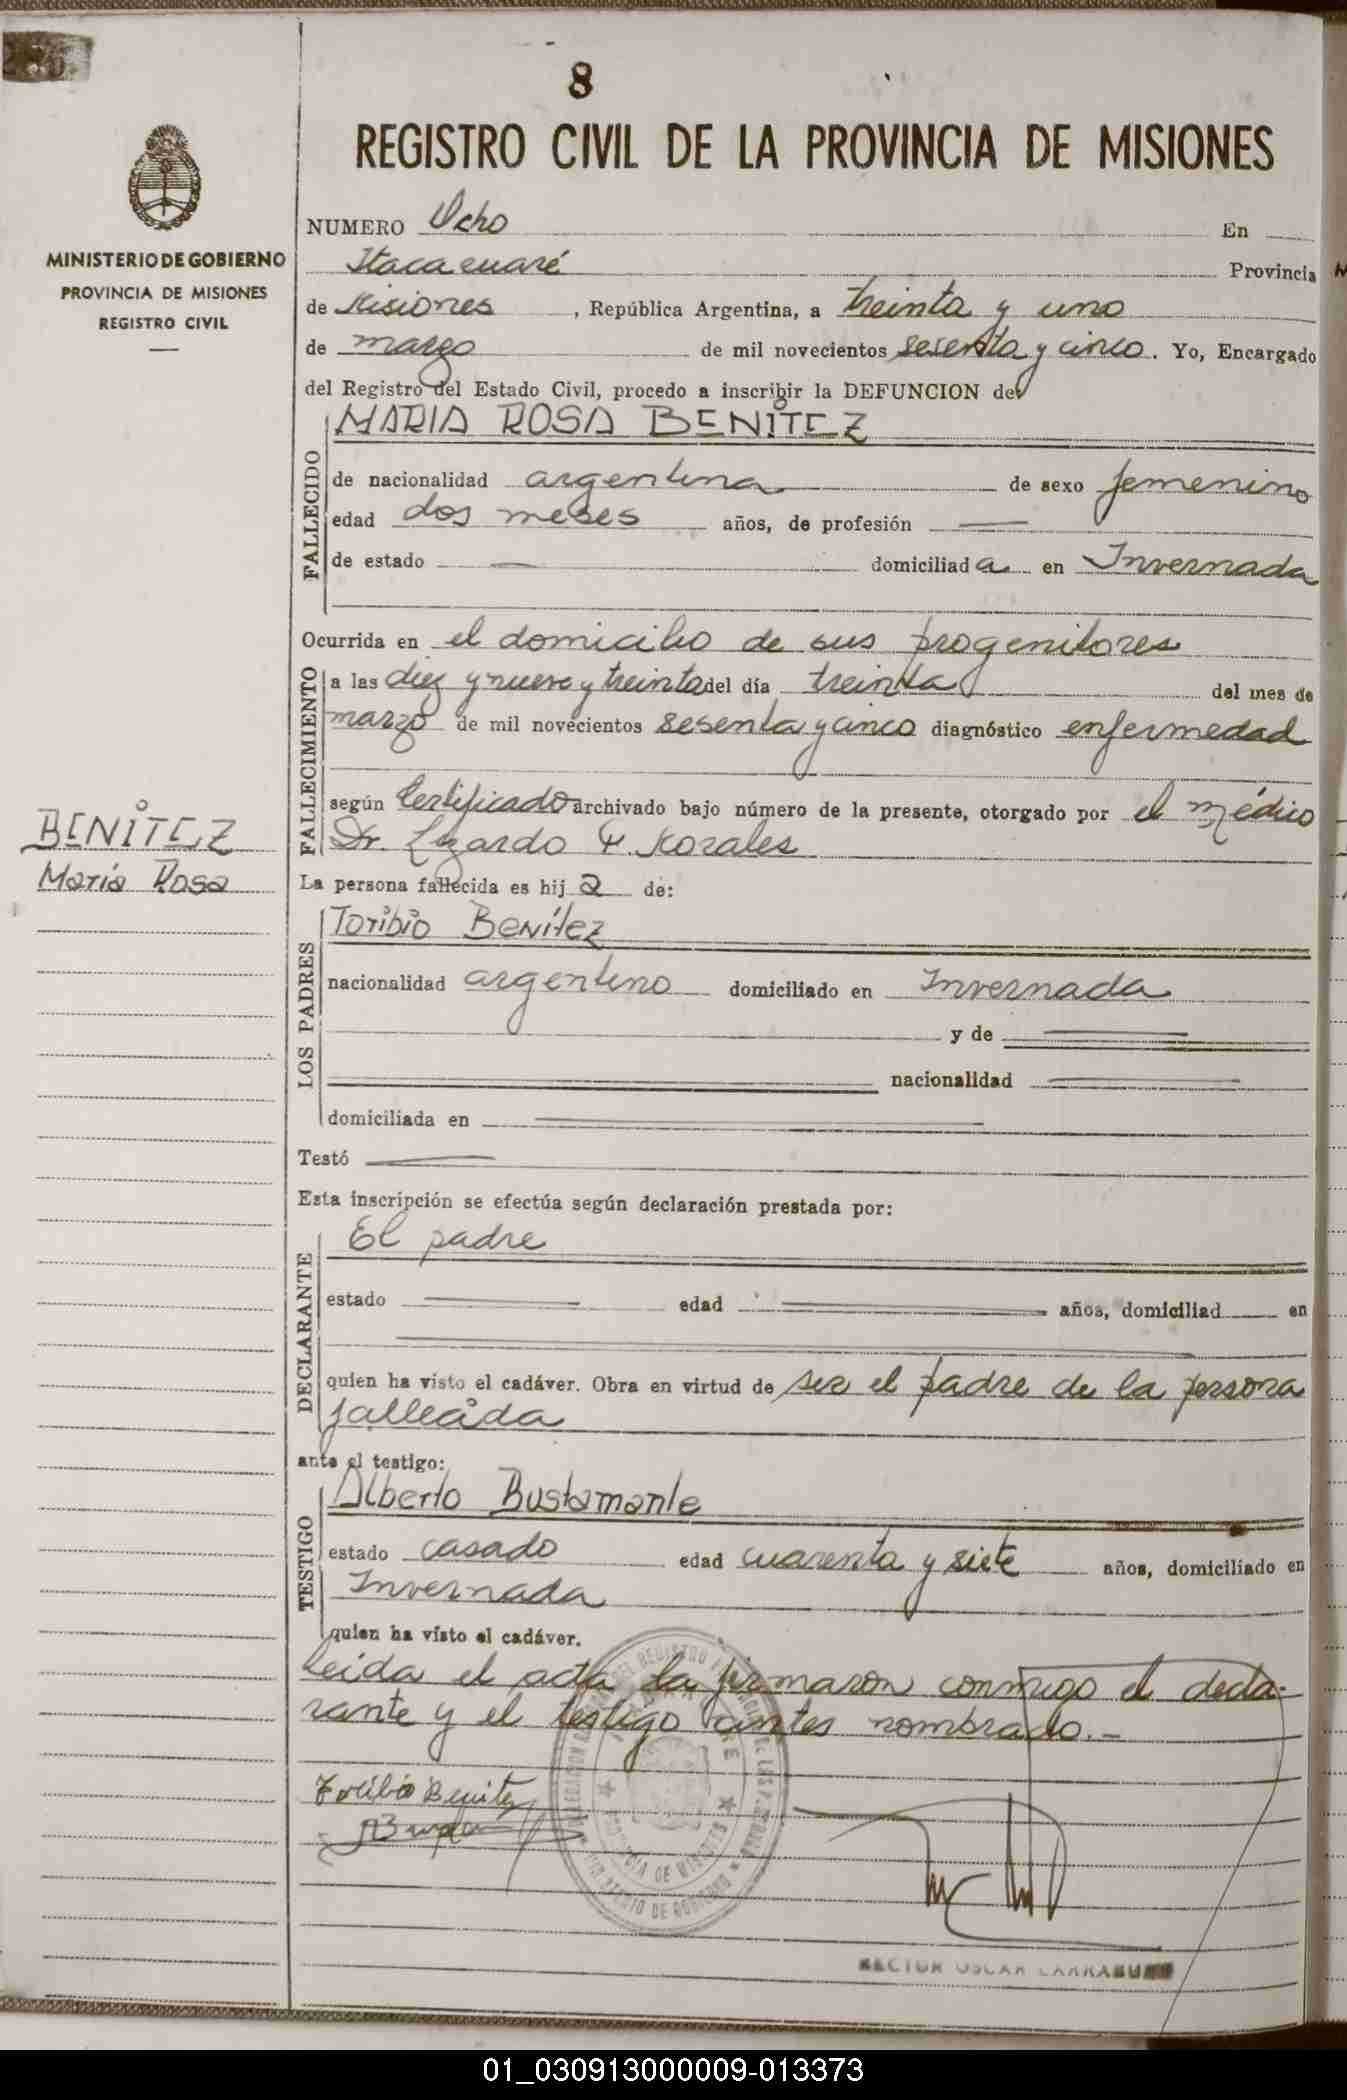 8
REGISTRO CIVIL DE LA PROVINCIA DE MISIONES
MINISTERIO DE GOBIERNO
PROVINCIA DE MISIONES
REGISTRO CIVIL
NUMERO Ocho En
Itacaruaré Provincia
de Misiones, República Argentina, a treinta y uno
de marzo de mil novecientos sesenta y cinco. Yo, Encargado
del Registro del Estado Civil, procedo a inscribir la DEFUNCION de
FALLECIDO
MARIA ROSA BENITEZ
de nacionalidad argentina de sexo femenino
edad dos meses años, de profesión —
de estado — domiciliada en Invernada
Ocurrida en el domicilio de sus progenitores
FALLECIMIENTO
a las diez y nueve y treinta del día treinta del mes de
marzo de mil novecientos sesenta y cinco diagnóstico enfermedad
según Certificado archivado bajo número de la presente, otorgado por el médico
Dr. Morales
BENITEZ
Maria Rosa
La persona fallecida es hija de:
LOS PADRES
Toribio Benítez
nacionalidad argentino domiciliado en Invernada
y de
nacionalidad
domiciliada en
Testó
Esta inscripción se efectúa según declaración prestada por:
DECLARANTE
El padre
estado edad años, domiciliad en
quien ha visto el cadáver. Obra en virtud de ser el padre de la persona
fallecida
ante el testigo:
TESTIGO
Alberto Bustamante
estado casado edad cuarenta y siete años, domiciliado en
Invernada
quien ha visto el cadáver.
Leida el acta la firmaron conmigo el decla-
rante y el testigo antes nombrado.-
Toribio Benitez
PROVINCIA DE MISIONES
MINISTERIO DE GOBIERNO
HECTOR OSCAR
01_030913000009-013373